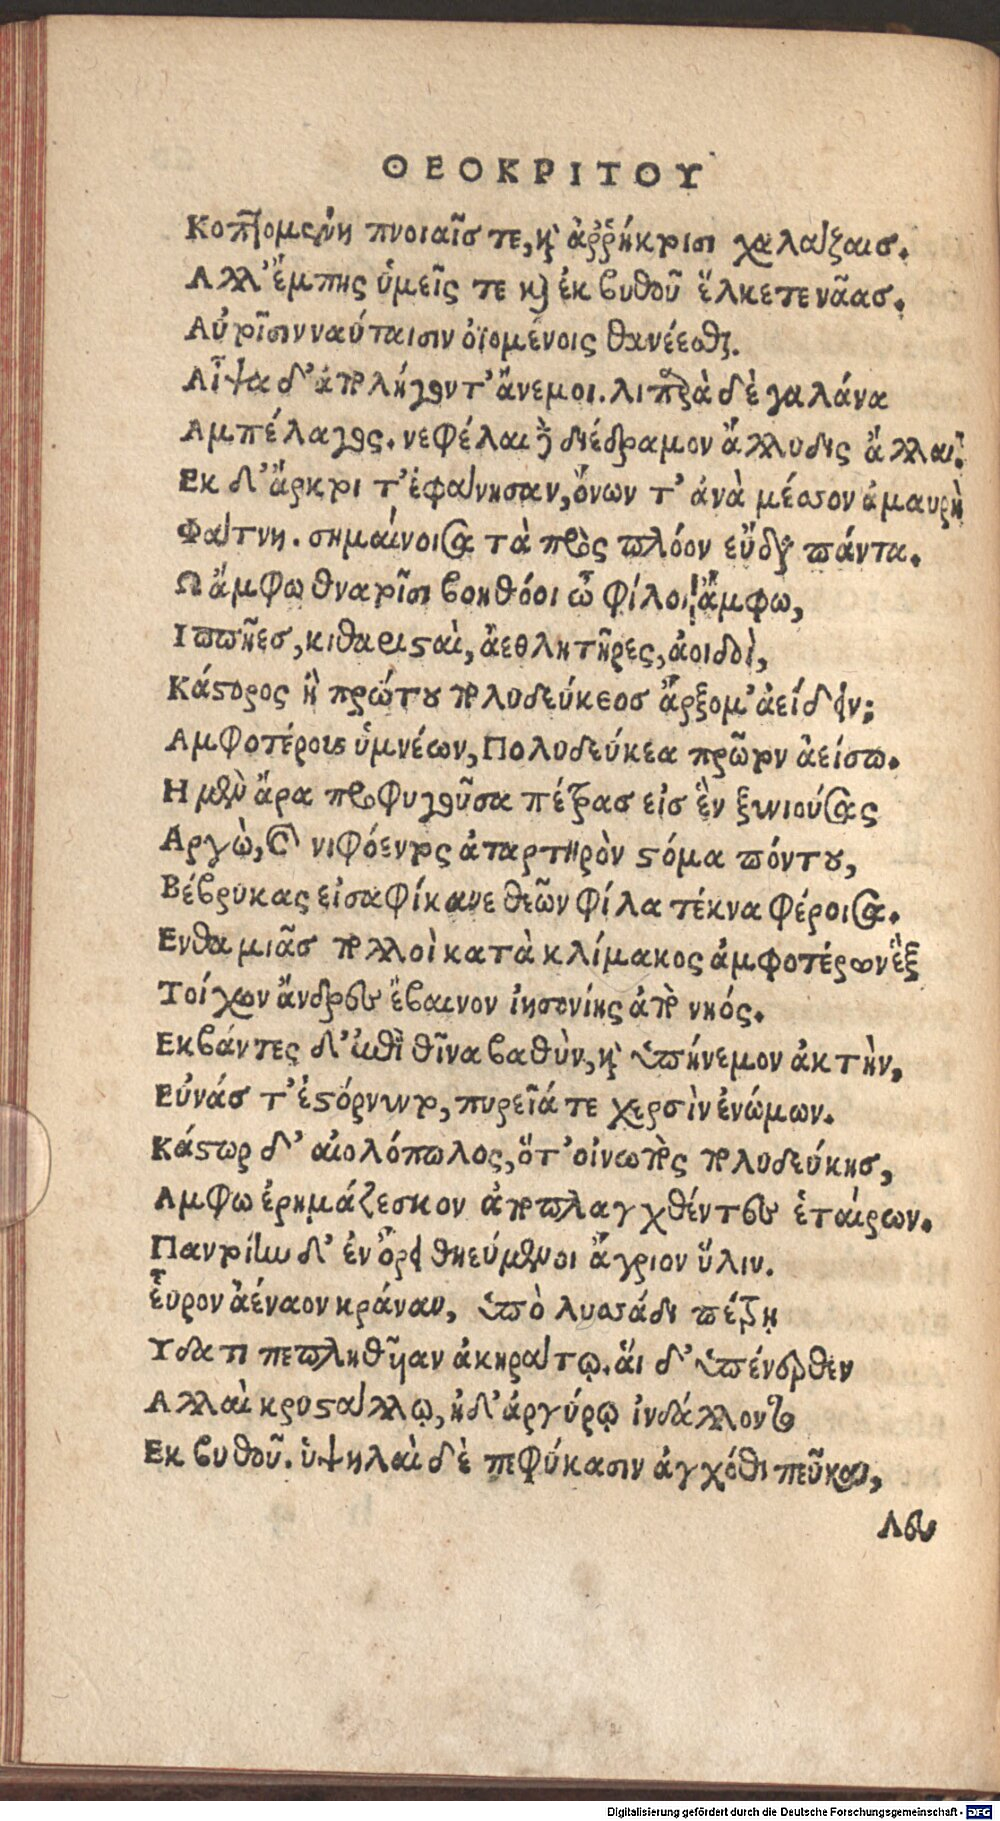 ΘΕΟΚΡΙΤΟΥ
Κοπτομένη πνοιαῖσ τε, καὶ ἀῤῥήκτοισι χαλάζαισ.
Αλλ' ἔμπης ὑμεῖς τε καὶ ἐκ βυθοῦ ἕλκετε νᾶασ.
Αὐτοῖσιν ναύταισιν ὀϊομένοις θανέεσθαι.
Αἶψα δ' ἀπολήγοντ' ἄνεμοι. λιπαρὰ δὲ γαλάνα
Αμπέλαγος. νεφέλαι δὲ διέδραμον ἄλλυδις ἄλλαι.
Εκ δ' ἄρκτοι τ' ἐφαίνησαν, ὄνων τ' ἀνὰ μέσσον ἀμαυρὴ
Φάτνη. σημαίνοισα τὰ πρὸς πλόον εὔδια πάντα.
Ω ἄμφω θνατοῖσι βοηθόοι ὦ φίλοι ἄμφω,
Ιππῆεσ, κιθαρισταὶ, ἀεθλητῆρες, ἀοιδοὶ,
Κάστορος ἢ πρώτου πολυδεύκεοσ ἄρξομ' ἀείδειν;
Αμφοτέρους ὑμνέων, Πολυδεύκεα πρῶτον ἀείσω.
Η μὲν ἄρα προφυγοῦσα πέτρασ εἰσ ἓν ξυνιούσας
Αργὼ, καὶ νιφόεντος ἀταρτηρὸν στόμα πόντου,
Βέβρυκας εἰσαφίκανε θεῶν φίλα τέκνα φέροισα.
Ενθα μιᾶσ πολλοὶ κατὰ κλίμακος ἀμφοτέρων ἒξ
Τοίχων ἄνδρες ἔβαινον ἰησονίης ἀπὸ νηός.
Εκβάντες δ' ἐπὶ θῖνα βαθὺν, καὶ ὑπήνεμον ἀκτὴν,
Εὐνάσ τ' ἐστόρνυντο, πυρεῖά τε χερσὶν ἐνώμων.
Κάστωρ δ' αἰολόπωλος, ὅτ' οἰνωπὸς πολυδεύκησ,
Αμφω ἐρημάζεσκον ἀποπλαγχθέντες ἑταίρων.
Παντοίην δ' ἐν ὄρει θηεύμενοι ἄγριον ὕλιν.
εὗρον ἀέναον κράναν, ὑπὸ λυσσάδι πέτρῃ
Υδατι πεπληθῆιαν ἀκηράτῳ. ἅι δ' ὑπένερθεν
Αλλαὶ κρυστάλλῳ, ἠδ' ἀργύρῳ ἰνδάλλοντο
Εκ βυθοῦ. ὑψηλαὶ δὲ πεφύκασιν ἀγχόθι πεῦκαι,
Λευ
Digitalisierung gefördert durch die Deutsche Forschungsgemeinschaft - DFG